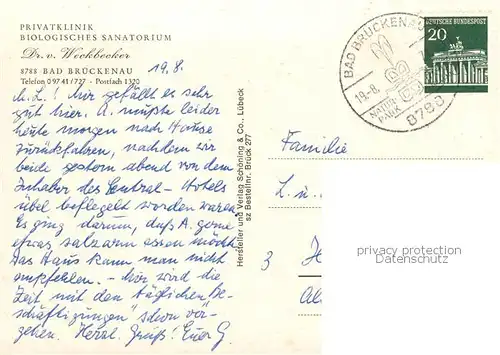 PRIVATKLINIK
BIOLOGISCHES SANATORIUM
Dr. v. Weckbecker
8788 BAD BRÜCKENAU
Telefon 0 97 41 / 727 - Postfach 1320
19.8.
M. L.! Mir gefällt es sehr
gut hier. A. mußte leider
heute morgen nach Hause
zurückfahren, nachdem wir
beide gestern abend von dem
Inhaber des Central-Hotels
übel beflegelt worden waren.
Es ging darum, daß A. gerne
etwas salzarm essen möchte.
Das Haus kann man nicht
empfehlen. - Mir wird die
Zeit mit den täglichen "Be-
schäftigungen" schon ver-
gehen. Herzl. Grüße! Euer G.
Hersteller und Verlag Schöning & Co., Lübeck
sz Bestellnr. Brück 27
BAD BRÜCKENAU
19.-8.
NATUR-
PARK
8788
DEUTSCHE BUNDESPOST
20
Familie
L. u.
3
privacy protection
Datenschutz